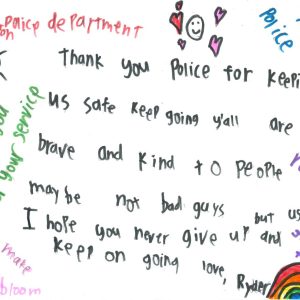 on police department
Police
Thank you Police for keepi
us safe keep going y'all are
brave and kind to people
maybe not bad guys but us
I hope you never give up and
keep on going love, Ryder
your service
make
bloom